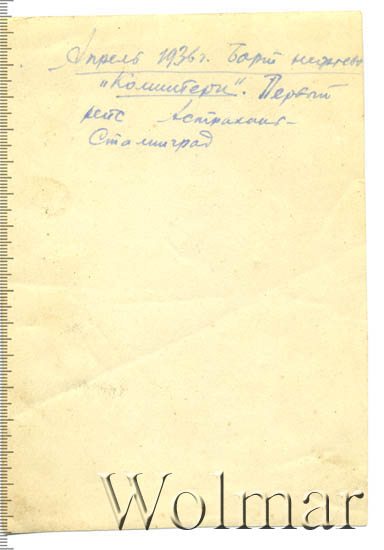 Апрель 1936г. Борт
"Коминтерн". Первый
рейс Астрахань-
Сталинград
Wolmar